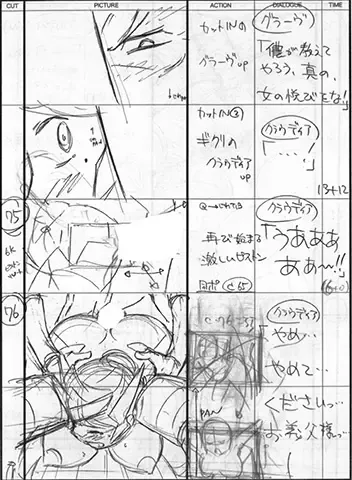 CUT PICTURE ACTION DIALOGUE TIME
カットINの
グラーヴup
グラーヴ
「僕が教えて
やろう、真の、
女の悦びをな!」
カットIN③
ギクリの
クラウディア
up
クラウディア
「…!」
13+12
75
再び始まる
激しいピストン
クラウディア
「うあああ
ああ〜!!」
(6+0)
76
クラウディア
「やめ…
やめて…
くださいっ…
お義父様っ…
PAN